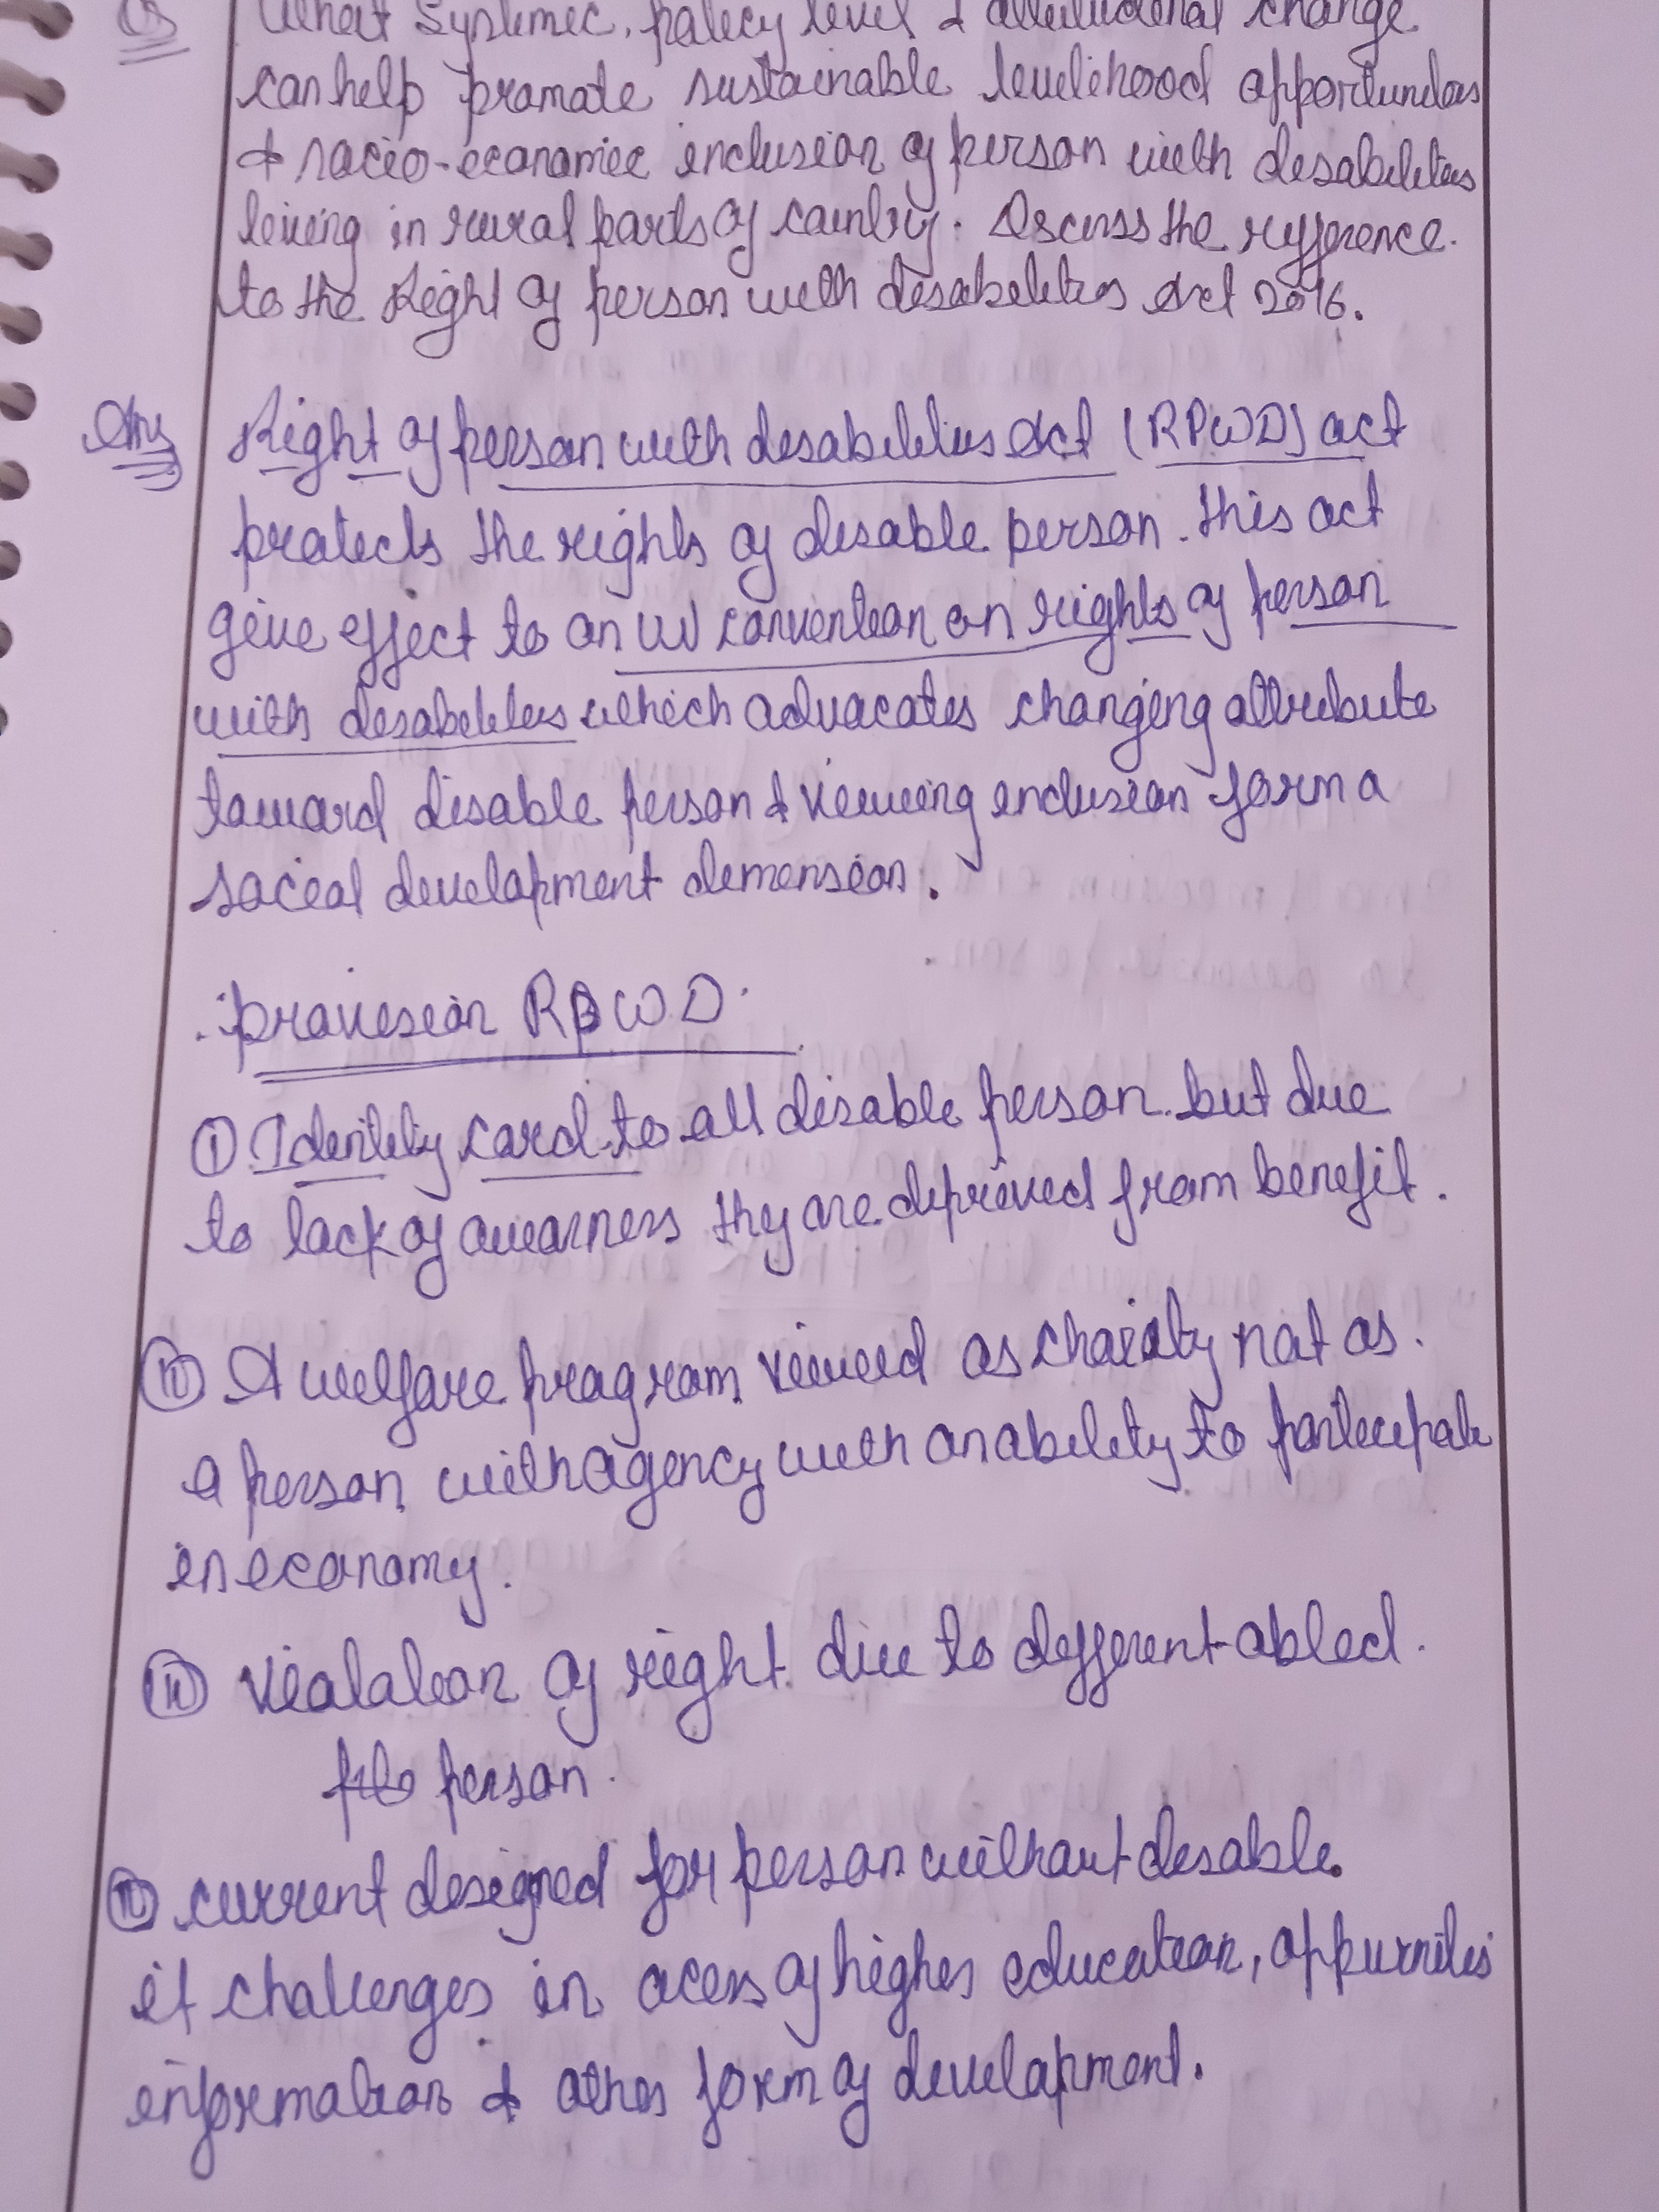 Q3 What Systemic, policy level & attitudional change
can help promote sustainable livelihood opportunities
& socio-economic inclusion of person with disabilities
living in rural parts of country. Discuss the refference
to the Right of person with disabilities Act 2016.
Ans Right of person with disabilities Act (RPWD) act
protects the rights of disable person. This act
give effect to an UN convention on rights of person
with disabilities which advocates changing attribute
toward disable person & viewing inclusion form a
social development dimension.
provision RPWD
(i) Identity card to all disable person but due
to lack of awearness they are deprived from benefit.
(ii) A welfare program viewed as charaity not as
a person with agency with an ability to participate
in economy.
(iii) violation of right due to different abled
person.
(iv) current designed for person without disable.
it challenges in acess of higher education, oppurnities
information & other form of development.